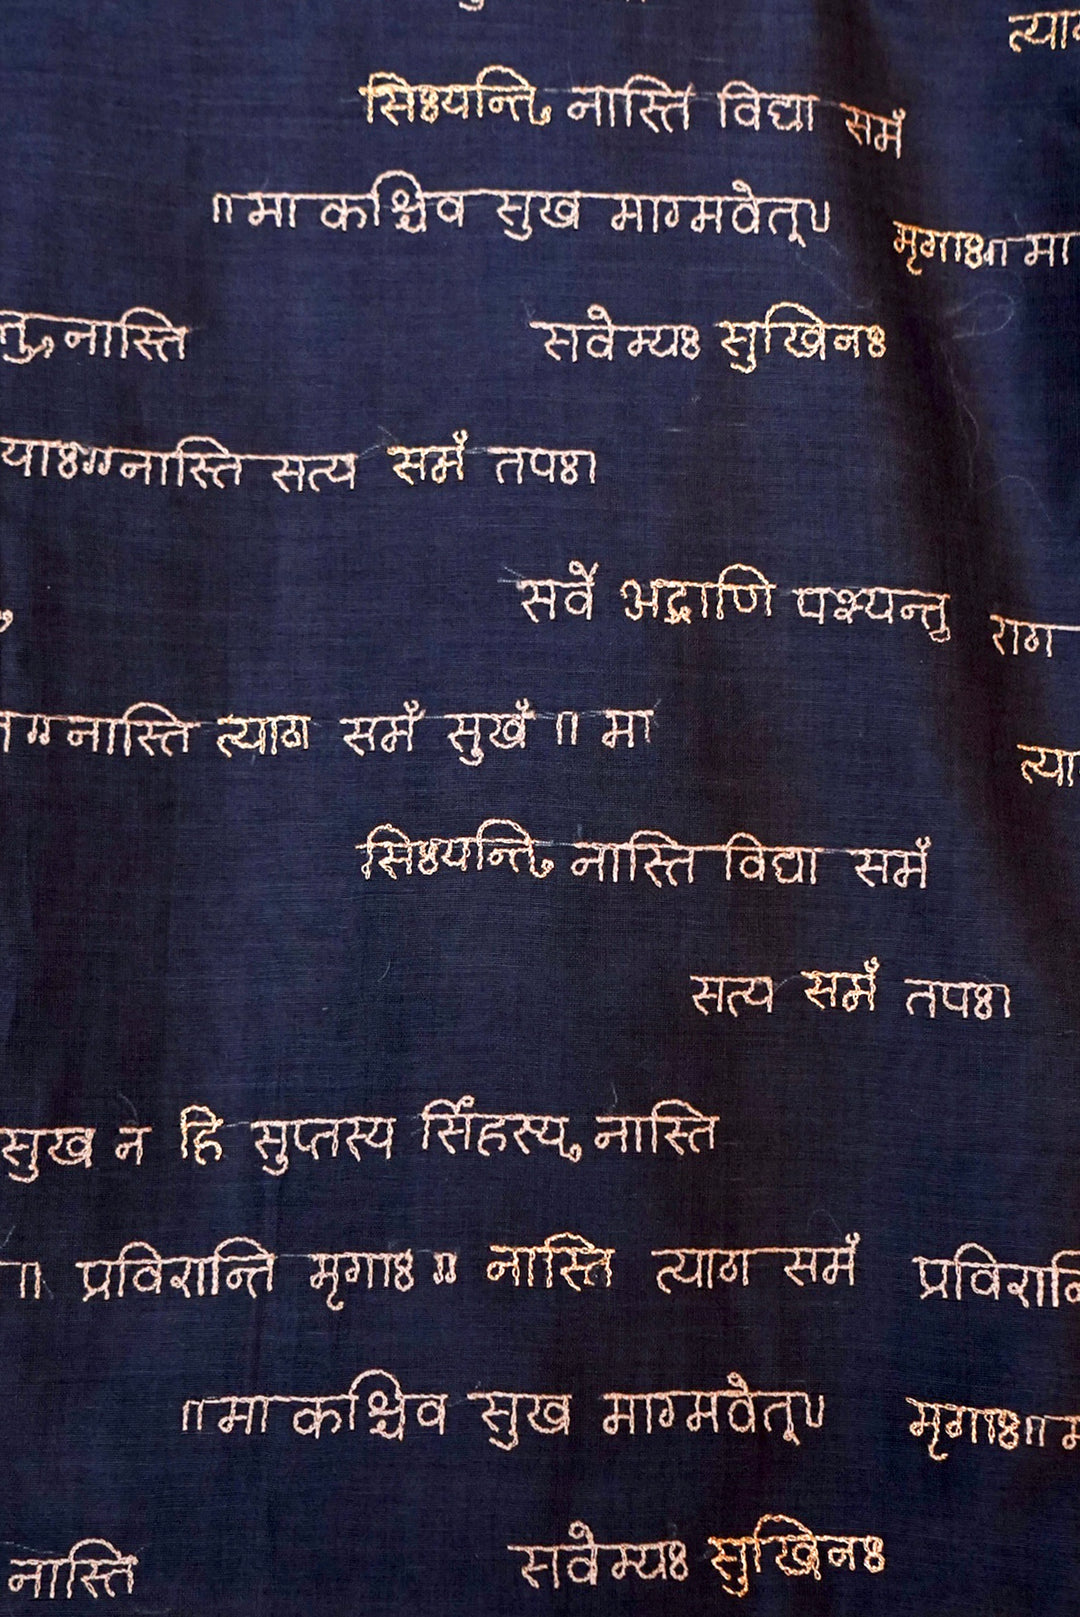 त्याग
सिः्यन्ति, नास्ति विद्या समँ
॥मा कश्चिव सुख माग्मवेत्॥
मृगाः॥ मा
तु,नास्ति
सवेम्यः सुखिनः
याः॥नास्ति सत्य समँ तपः।
सवै भद्राणि पश्यन्तु
राग
॥नास्ति त्याग समँ सुखँ ॥ मा
त्या
सिः्यन्ति, नास्ति विद्या समँ
सत्य समँ तपः।
सुख न हि सुप्तस्य सिंहस्य, नास्ति
॥ प्रविरान्ति मृगाः॥ नास्ति त्याग समँ
प्रविरान्ति
॥मा कश्चिव सुख माग्मवेत्॥
मृगाः॥
नास्ति
सवेम्यः सुखिनः